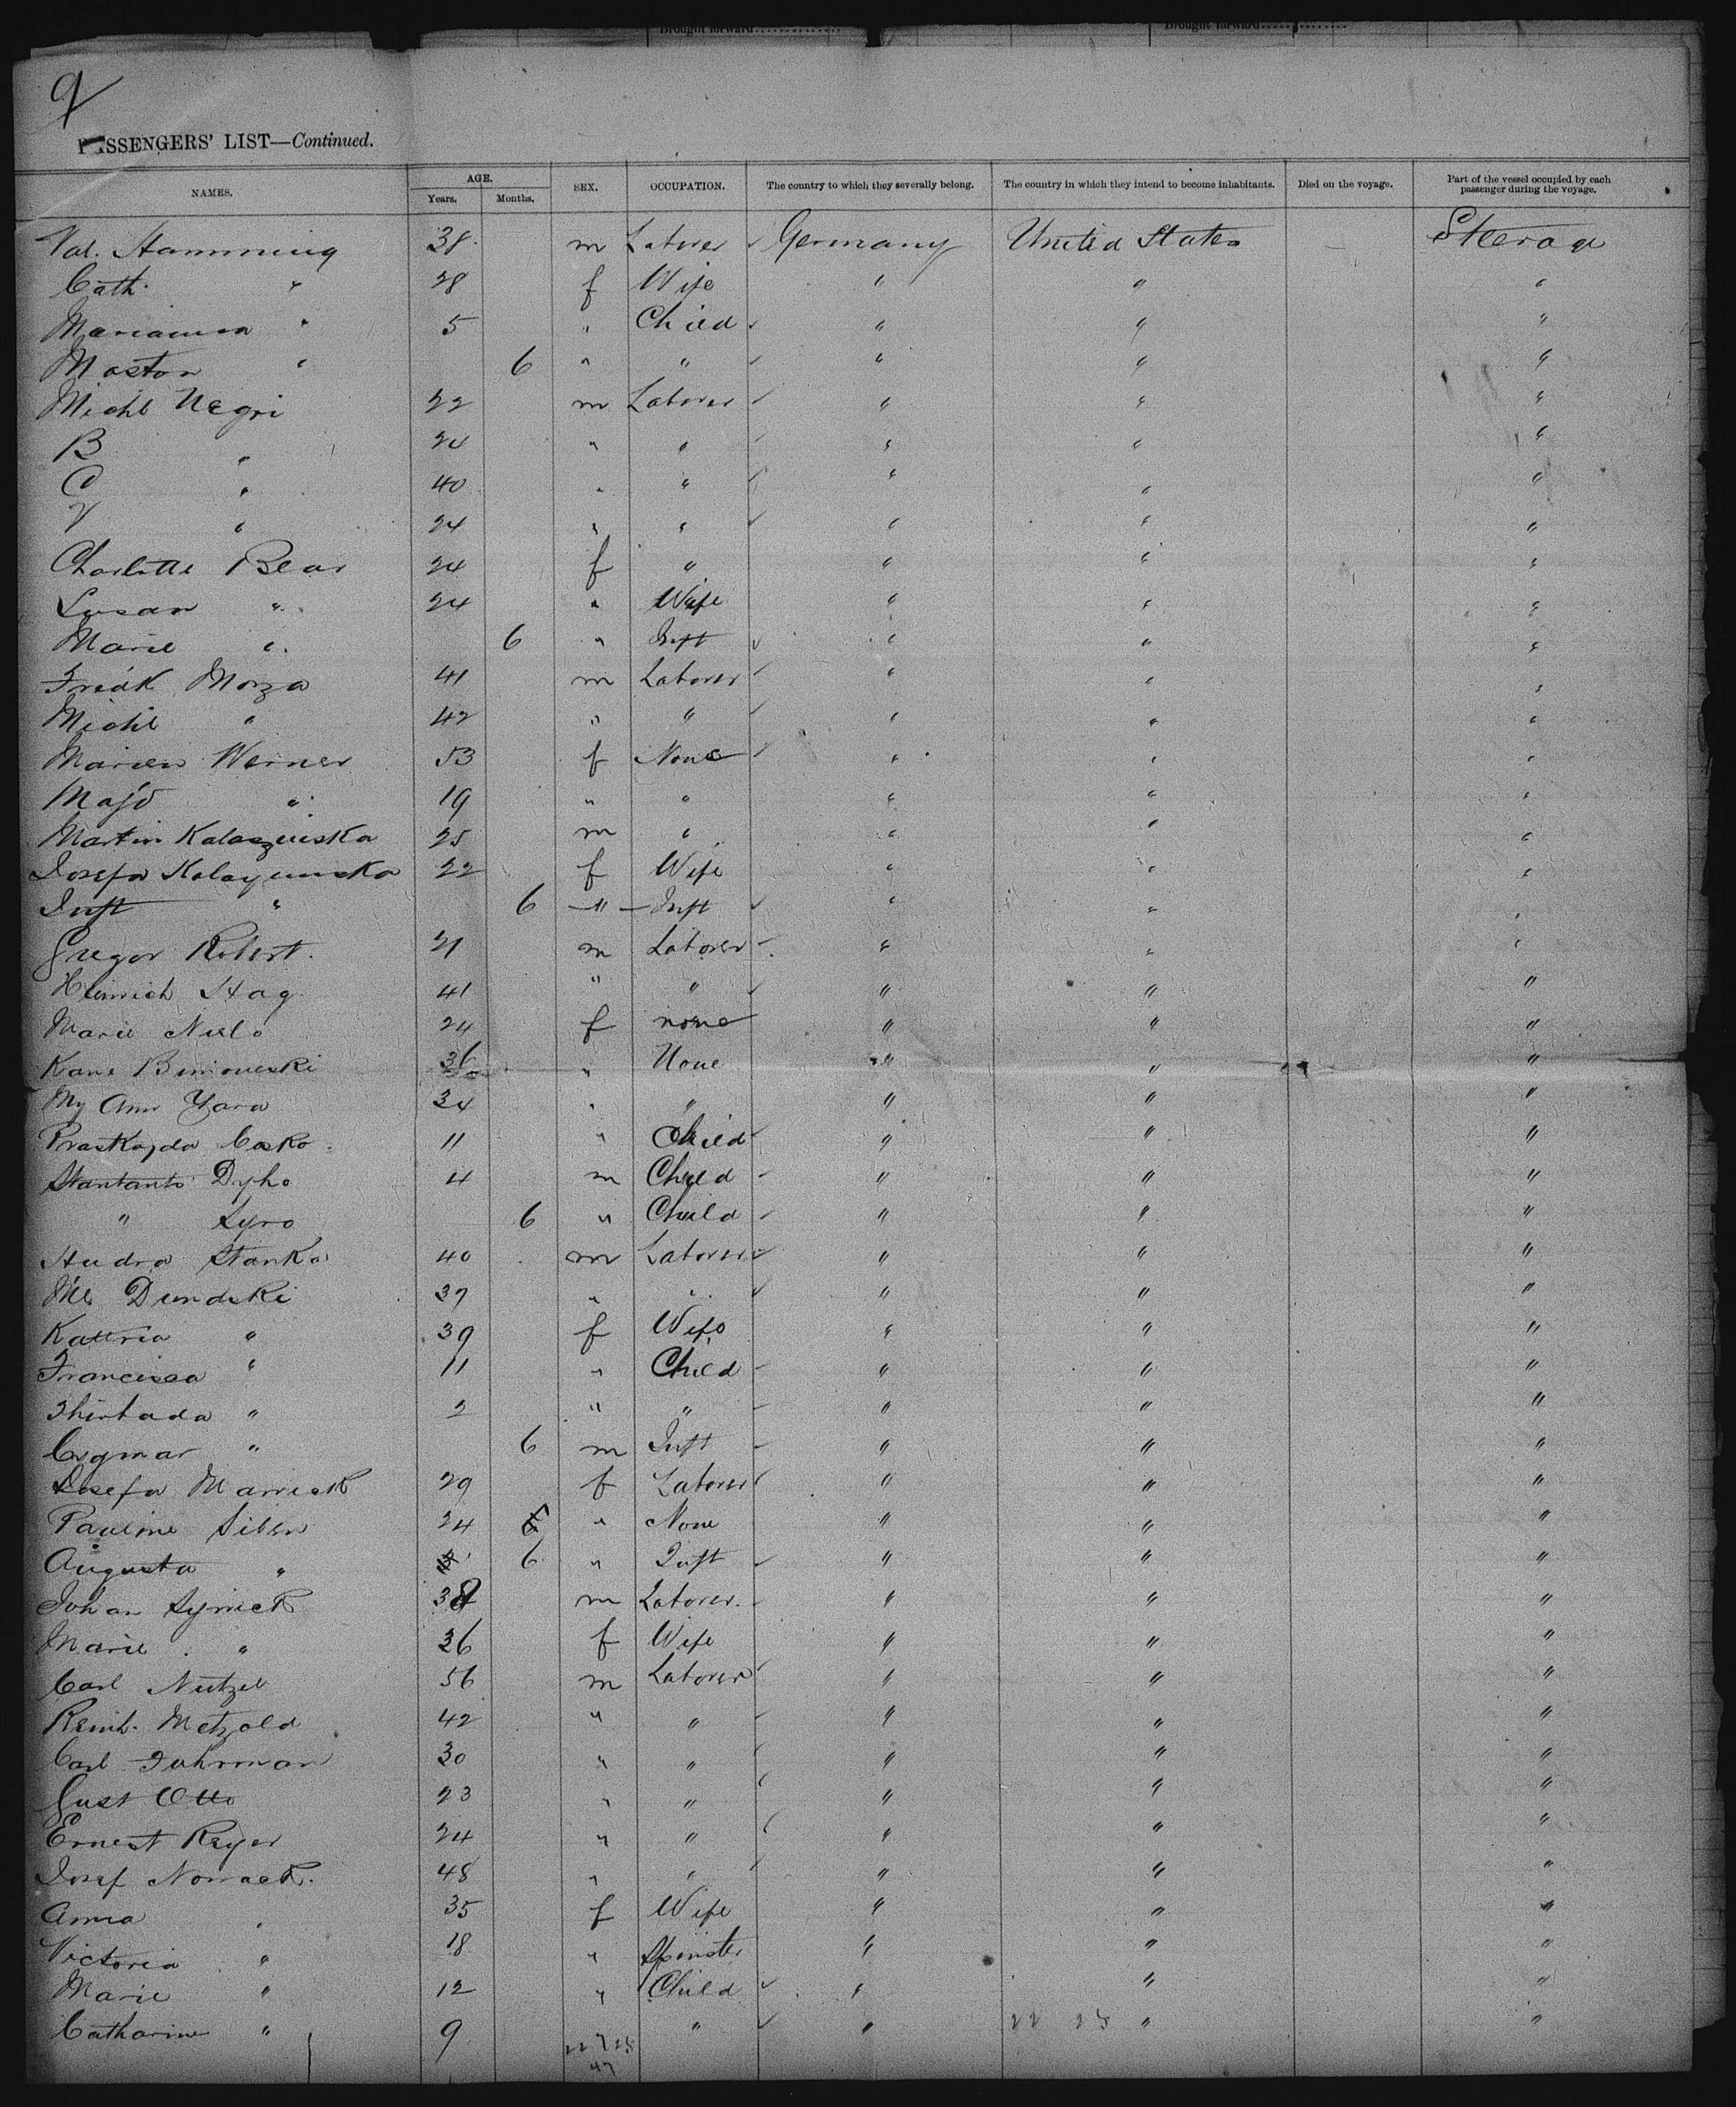 Brought forward............... Brought forward...............
9
PASSENGERS' LIST—Continued.
NAMES. AGE. SEX. OCCUPATION. The country to which they severally belong. The country in which they intend to become inhabitants. Died on the voyage. Part of the vessel occupied by each passenger during the voyage.
Years. Months.
Val. Hamming 38 m Laborer Germany United States Steerage
Cath. " 28 f Wife " " "
Marianna " 5 " Child " " "
Maston " 6 " " " " "
Michl Negri 22 m Laborer " " "
B " 24 " " " " "
C " 40 " " " " "
V " 24 " " " " "
Charlotte Bear 24 f " " " "
Susan " 24 " Wife " " "
Marie " 6 " Inft " " "
Fredk Morza 41 m Laborer " " "
Michl " 42 " " " " "
Marien Werner 53 f None " " "
Majd " 19 " " " " "
Martin Kalaszinska 25 m " " " "
Josefa 22 f Wife " " "
Inft " 6 " Inft " " "
Gregor Robert. 21 m Laborer " " "
Heinrich Hag 41 " " " " "
Marie 24 f none " " "
" None " " "
My Ann Yara 34 " " " " "
Praskajda Casko 11 " Child " " "
Stantanto Dyho 4 m Child " " "
" Syro 6 " Child " " "
Audra Stanka 40 m Laborer " " "
Dundski 37 " " " " "
Kattria " 39 f Wife " " "
Francisca " 11 " Child " " "
" 2 " " " " "
" 6 m Inft " " "
Josefa 29 f Laborer " " "
Pauline Siben 24 " None " " "
Augusta " 6 " Inft " " "
Johan 38 m Laborer " " "
Marie " 26 f Wife " " "
Carl Nutzel 56 m Laborer " " "
Reinh. Metzold 42 " " " " "
Carl Fuhrman 30 " " " " "
Gust Otto 23 " " " " "
Ernest Reyer 24 " " " " "
Josef Nowack. 48 " " " " "
Anna " 35 f Wife " " "
Victoria " 18 " Spinster " " "
Marie " 12 " Child " " "
Catharine " 9 " " 22 25 " "
22 25
47